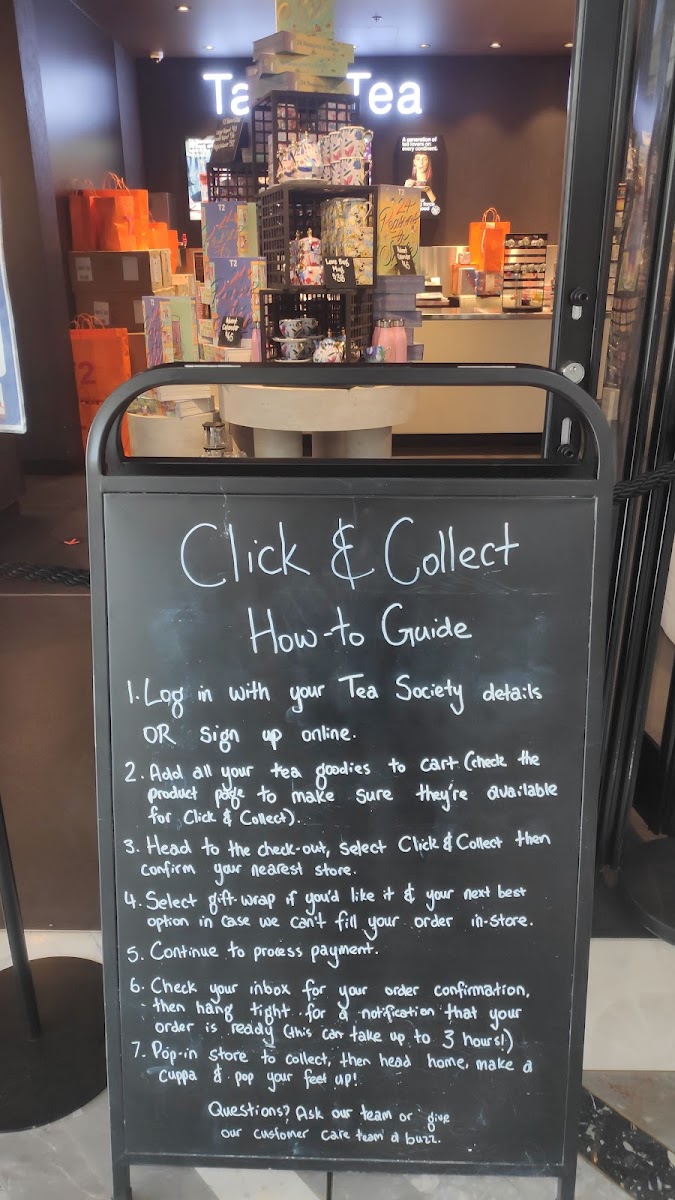 Ta Tea
A generation of
tea lovers on
every continent.
T2
T2
T2
Long Bois
Mugs
$38
Click & Collect
How-to Guide
1. Log in with your Tea Society details
OR sign up online.
2. Add all your tea goodies to cart (check the
product page to make sure they're available
for Click & Collect).
3. Head to the check-out, select Click & Collect then
confirm your nearest store.
4. Select gift-wrap if you'd like it & your next best
option in case we can't fill your order in-store.
5. Continue to process payment.
6. Check your inbox for your order confirmation,
then hang tight for a notification that your
order is ready (this can take up to 3 hours!)
7. Pop-in store to collect, then head home, make a
cuppa & pop your feet up!
Questions? Ask our team or give
our customer care team a buzz.